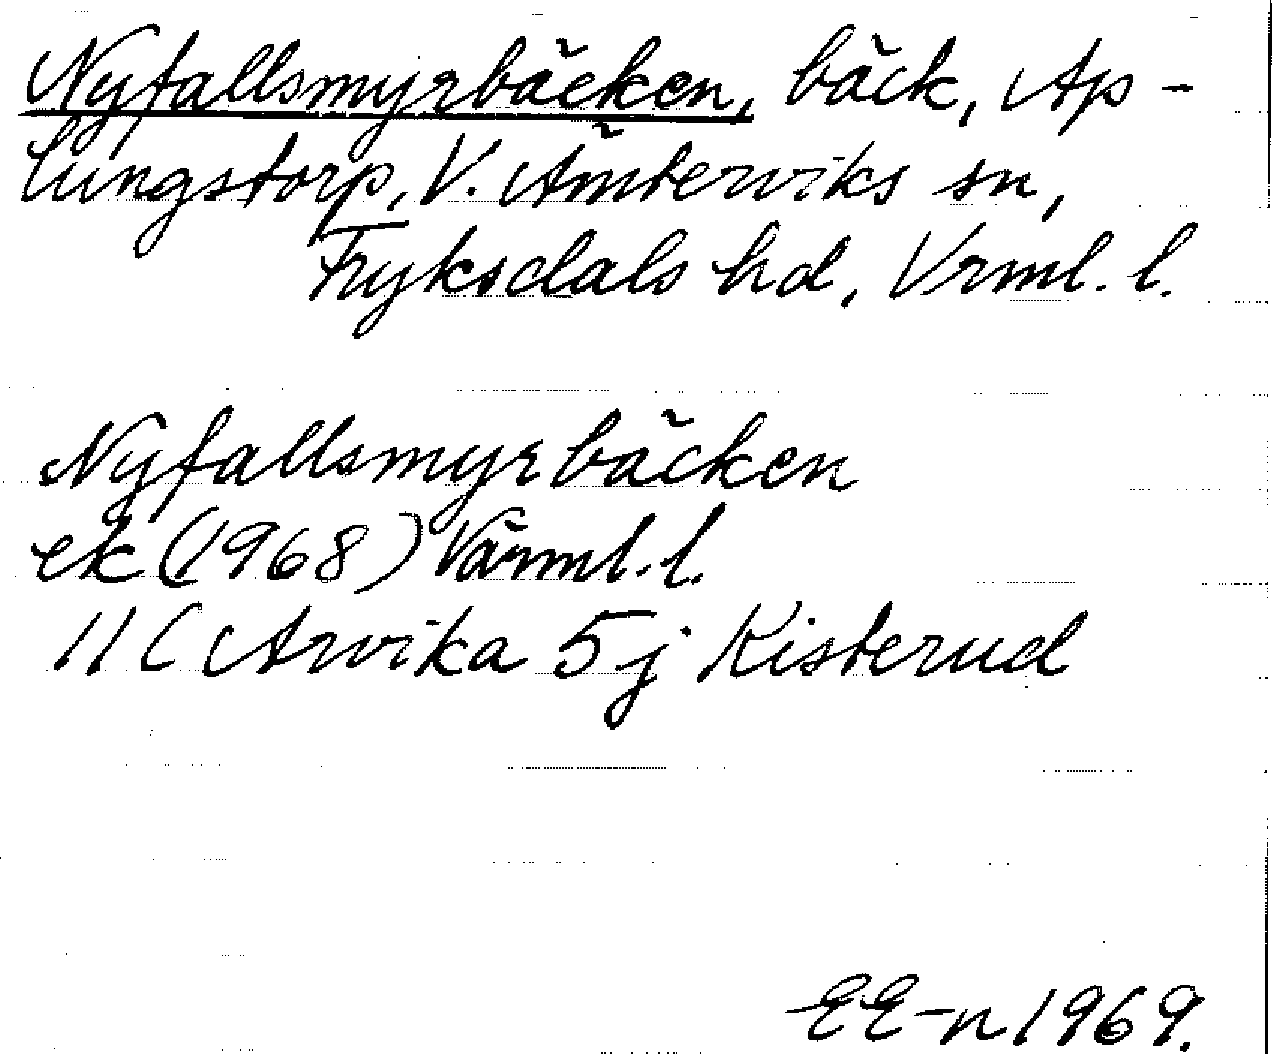 Nyfallsmyrbäcken, bäck, Ap-
lungstorp, V. Ämterviks sn,
Fryksdals hd, Vrml. l.
Nyfallsmyrbäcken
ek (1968) Värml. l.
11C Arvika 5j Kisterud
EE-n 1969.